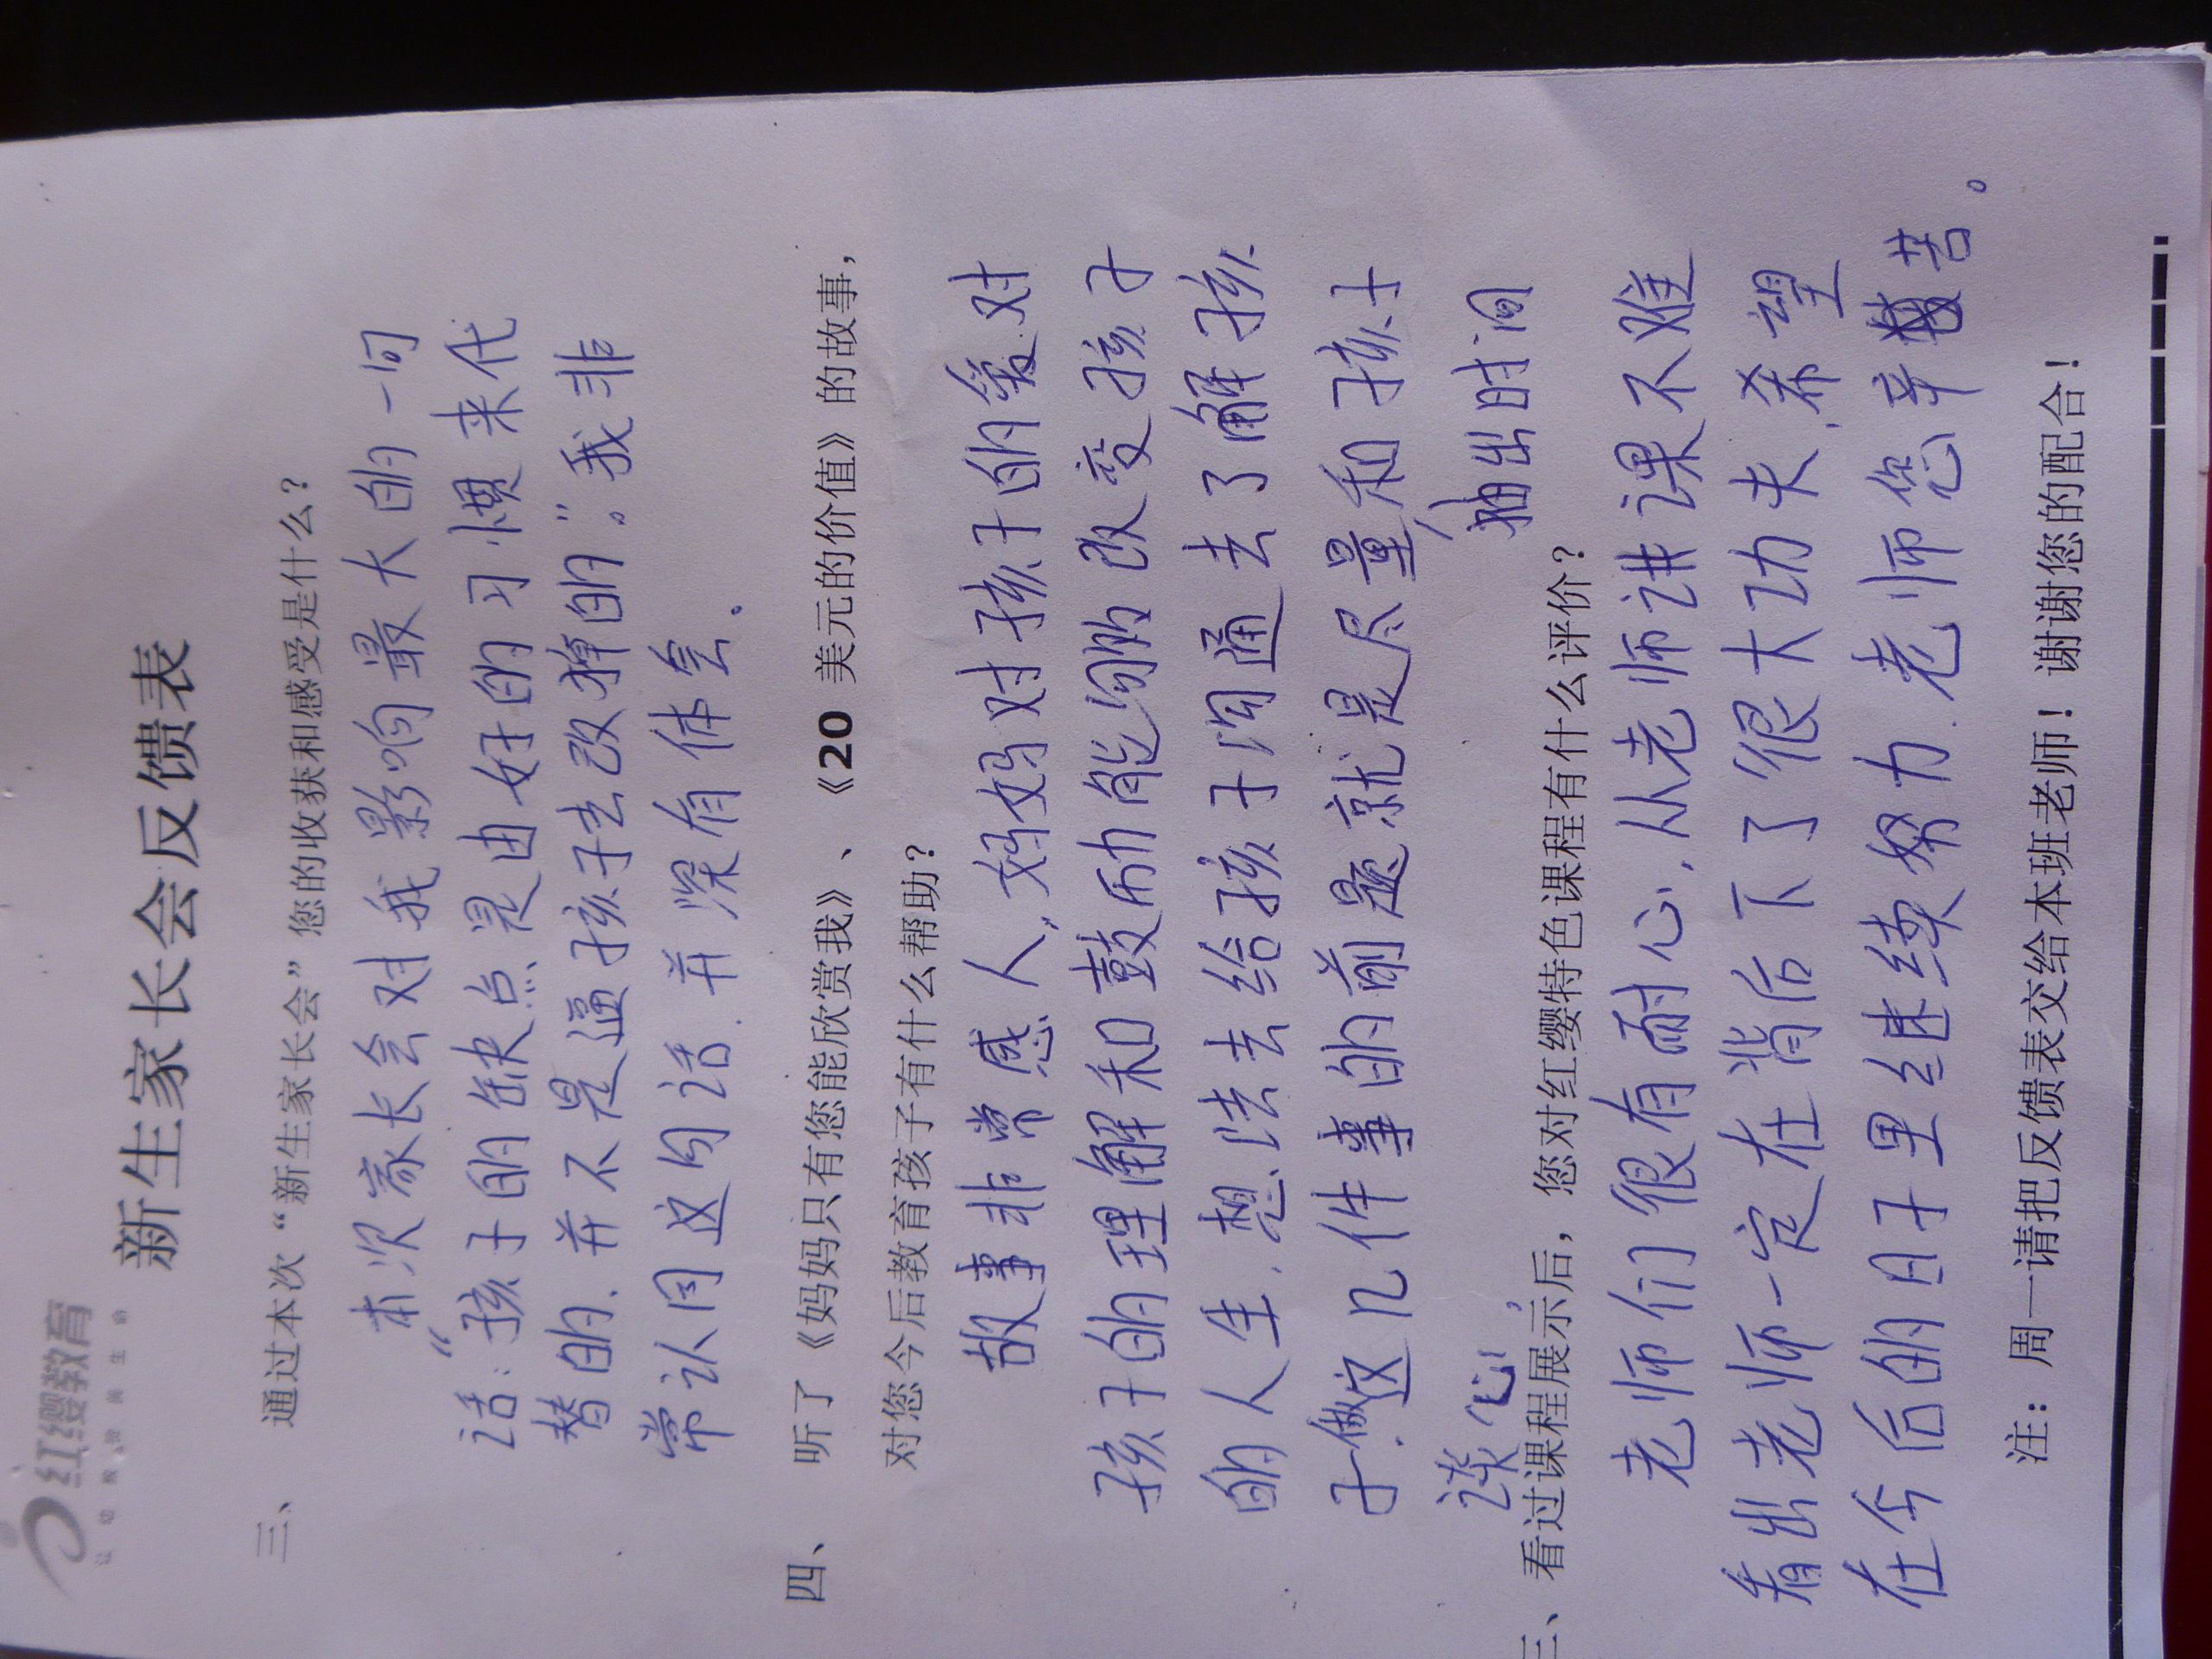 红缨教育
新生家长会反馈表
三、 通过本次“新生家长会”您的收获和感受是什么？
本次家长会对我影响最大的一句
话:“孩子的缺点是由好的习惯来代
替的.并不是逼孩子去改掉的。”我非
常认同这句话.并深有体会.
四、 听了《妈妈只有您能欣赏我》、《20 美元的价值》的故事，
对您今后教育孩子有什么帮助？
故事非常感人,妈妈对孩子的爱.对
孩子的理解和鼓励能够改变孩子
的人生.想法去给孩子沟通去了解孩
子.做这几件事的前题就是尽量和孩子
抽出时间
谈心,
三、看过课程展示后，您对红缨特色课程有什么评价？
老师们很有耐心.从老师讲课不难
看出老师一定在背后下了很大功夫.希望
在今后的日子里继续努力.老师您辛苦。
注：周一请把反馈表交给本班老师！谢谢您的配合！